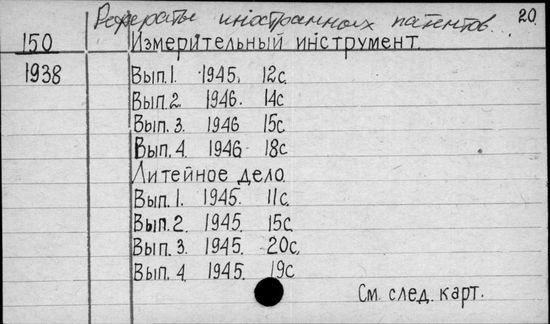 Рефераты иностранных патентов. 20.
150 Измерительный инструмент.
1938 Вып.1. 1945. 12с.
Вып.2. 1946. 14с
Вып. 3. 1946 15с
Вып. 4. 1946 18с
Литейное дело.
Вып. 1. 1945. 11с.
Вып. 2. 1945. 15с.
Вып. 3. 1945. 20с.
Вып. 4. 1945. 19с
См. след. карт.